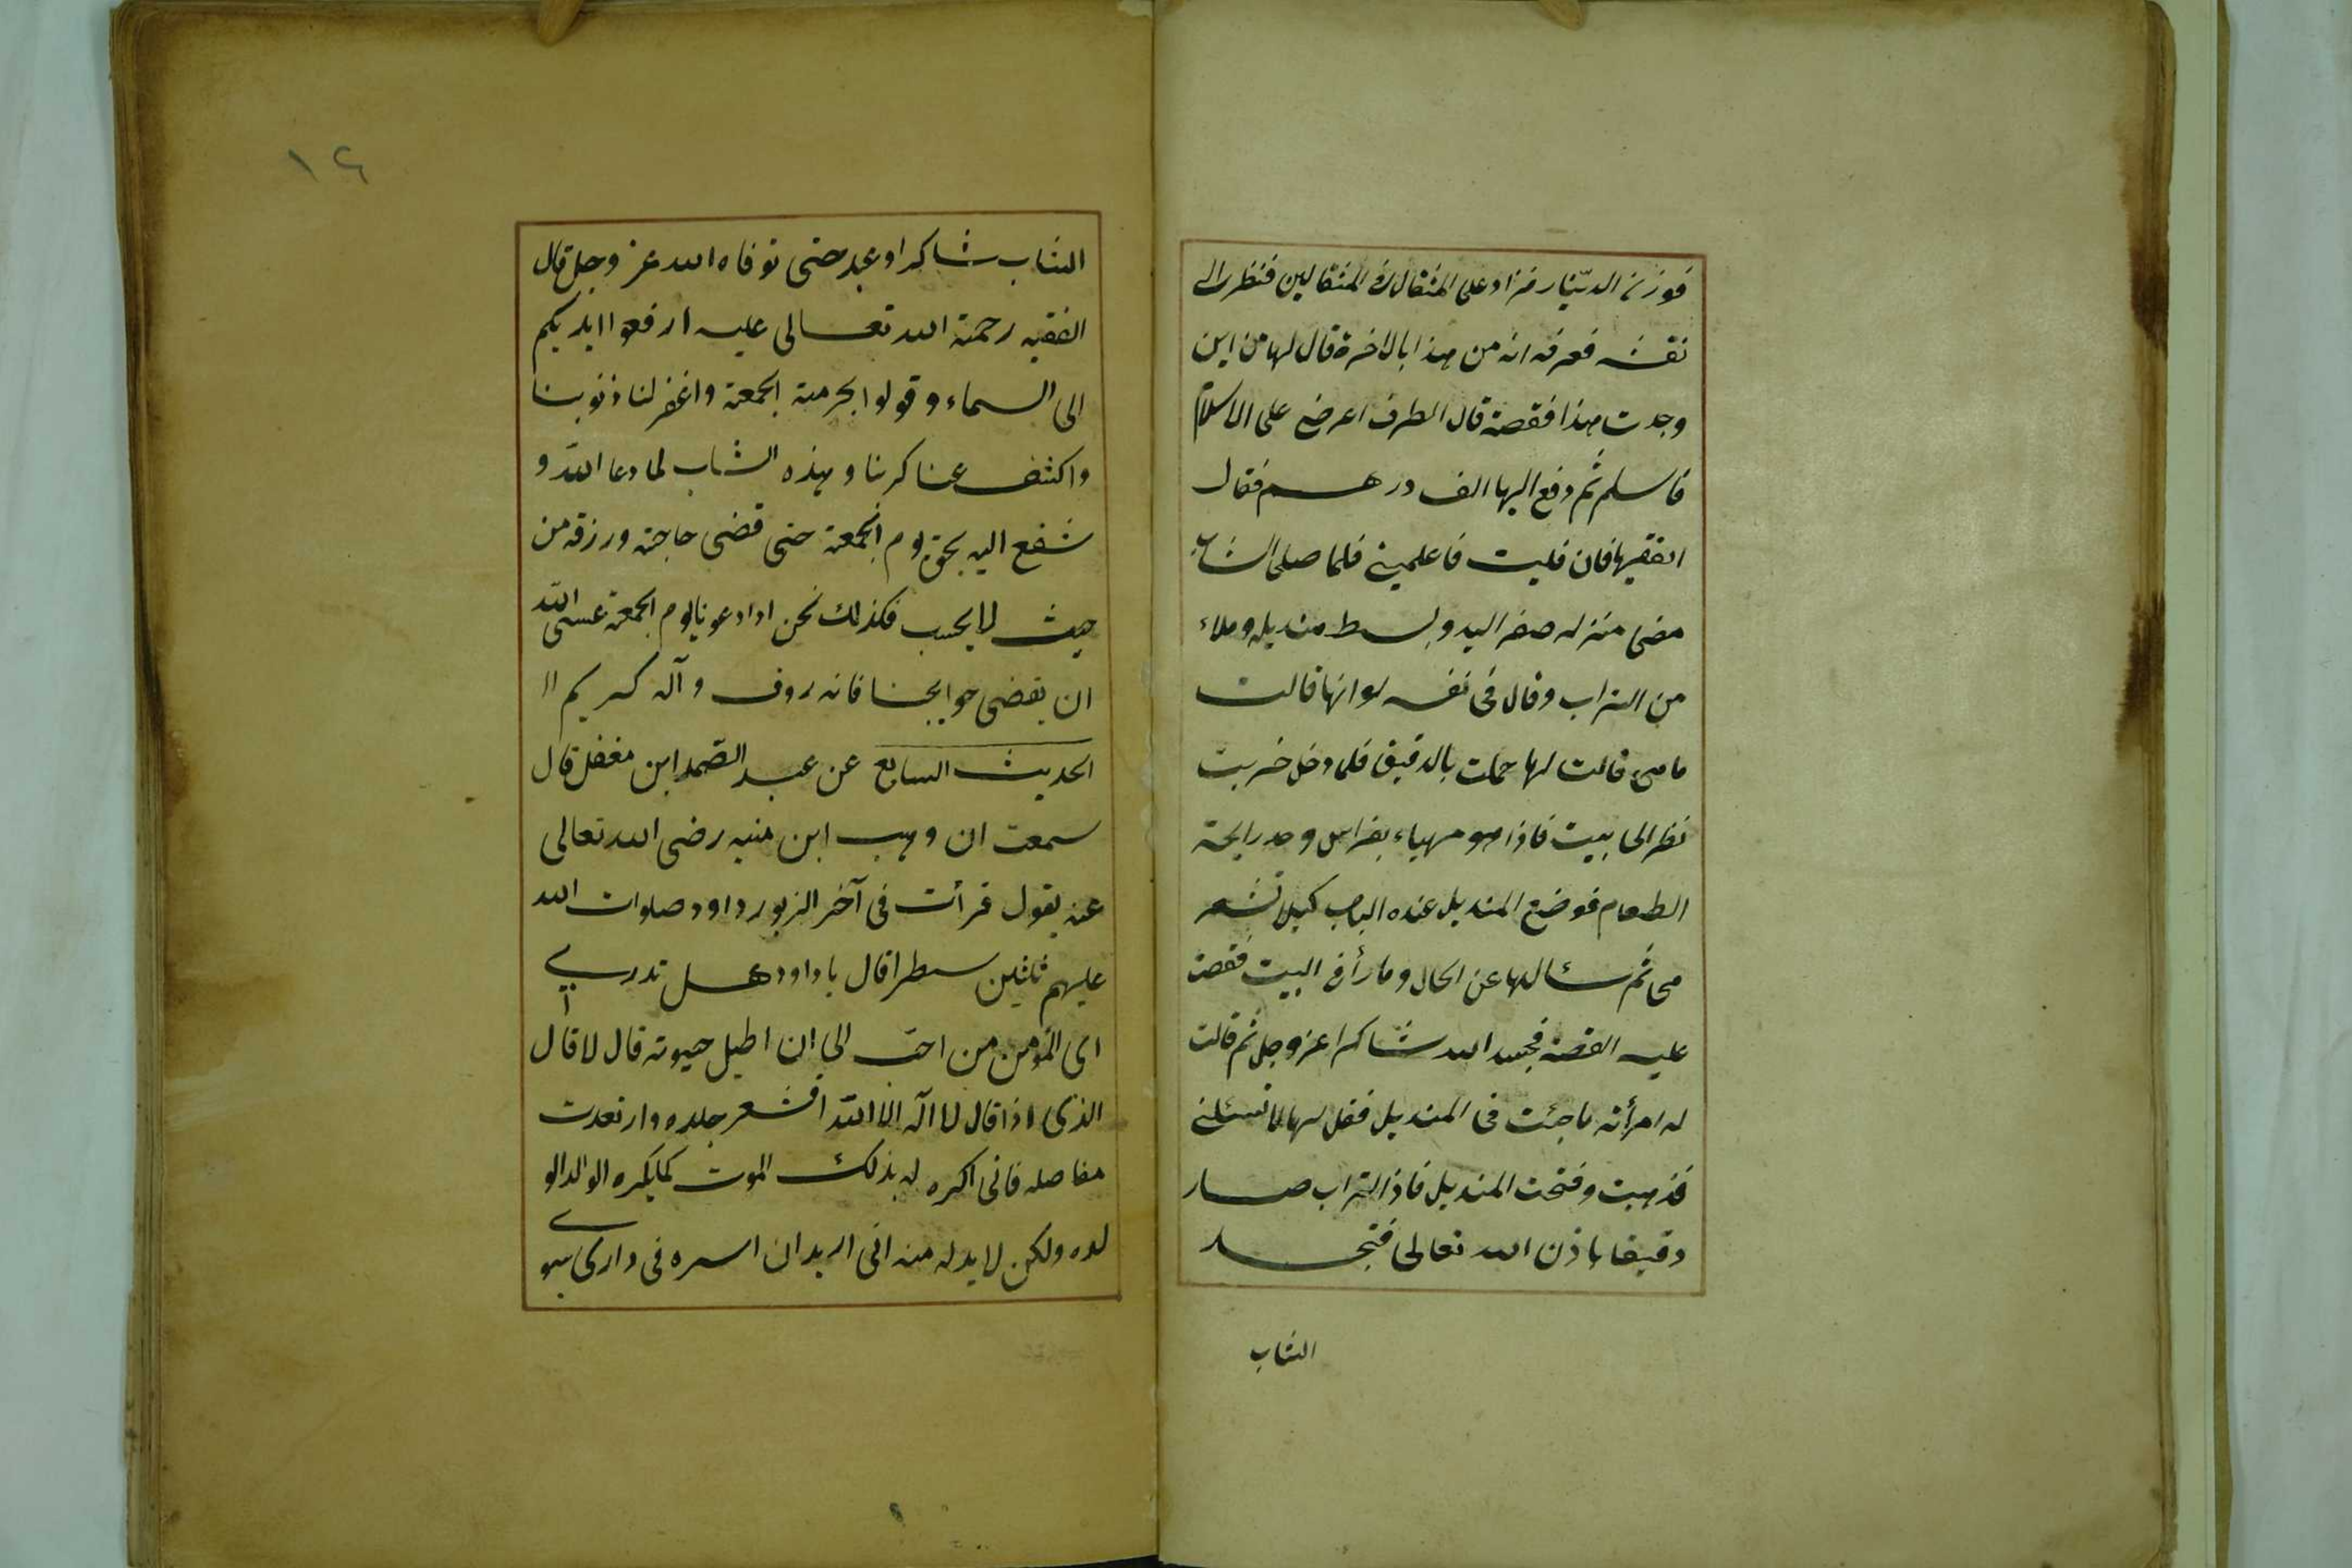 فوزن الدینار فزاد علی المثقال فی المثقالین فنظر الی
نقشه فعرفه انه من هذا بالاخرة قال لها من این
وجدت هذا فقصة قال الطرف اعرض علی الاسلام
فاسلم ثم دفع الیها الف درهم فقال
الفقیها فان فلیت فاعلمینی فلما صلی الشاب
مضی منزله صفر الید وبسط مندیله وملاء
من التراب وقال فی نفسه لو انها قالت
ما هی قالت لها حملت بالدقیق فلما دخل خربت
نظر الی بیت فاذا هو مهیاء بفراش وجد رایحة
الطعام فوضع المندیل عنده الباب کیلا تشعر
ثم سئالها عن الحال وما رأ فی البیت فقصت
علیه القصة فحمد الله شاکرا عز وجل ثم قالت
له امرأته ما جئت فی المندیل فقل لها لا تسئلنی
فذهبت وفتحت المندیل فاذا التراب صار
دقیقا باذن الله تعالی
الشاب
١٤
الشاب شاکرا وعبد حتی توفاه الله عز وجل قال
الفقیه رحمة الله تعالی علیه ارفعوا ایدیکم
الی السماء وقولوا بحرمة الجمعة واغفر لنا ذنوبنا
واکشف عنا کربنا وهذه الشاب لما دعا الله و
شفع الیه بحق یوم الجمعة حتی قضی حاجته ورزقه من
حیث لا یحسب فکذلك نحن اذا دعونا یوم الجمعة عسی الله
ان یقضی حوایجنا فانه روف وآله کریم
الحدیث السابع عن عبد الصّمد ابن مغفل قال
سمعت ان وهب ابن منبه رضی الله تعالی
عنه یقول قرأت فی آخر الزبور داود صلوات الله
علیهم ثلثین سطرا قال یا داود هل تدری
ای المؤمن من احبّ الی ان اطیل حیوته قال لا قال
الذی اذا قال لا اله الا الله اقشعر جلده وارتعدت
مفاصله فانی اکره له بذلك الموت کما یکره الوالد الو
لده ولکن لا بد له منه انی ارید ان اسره فی داری سوی